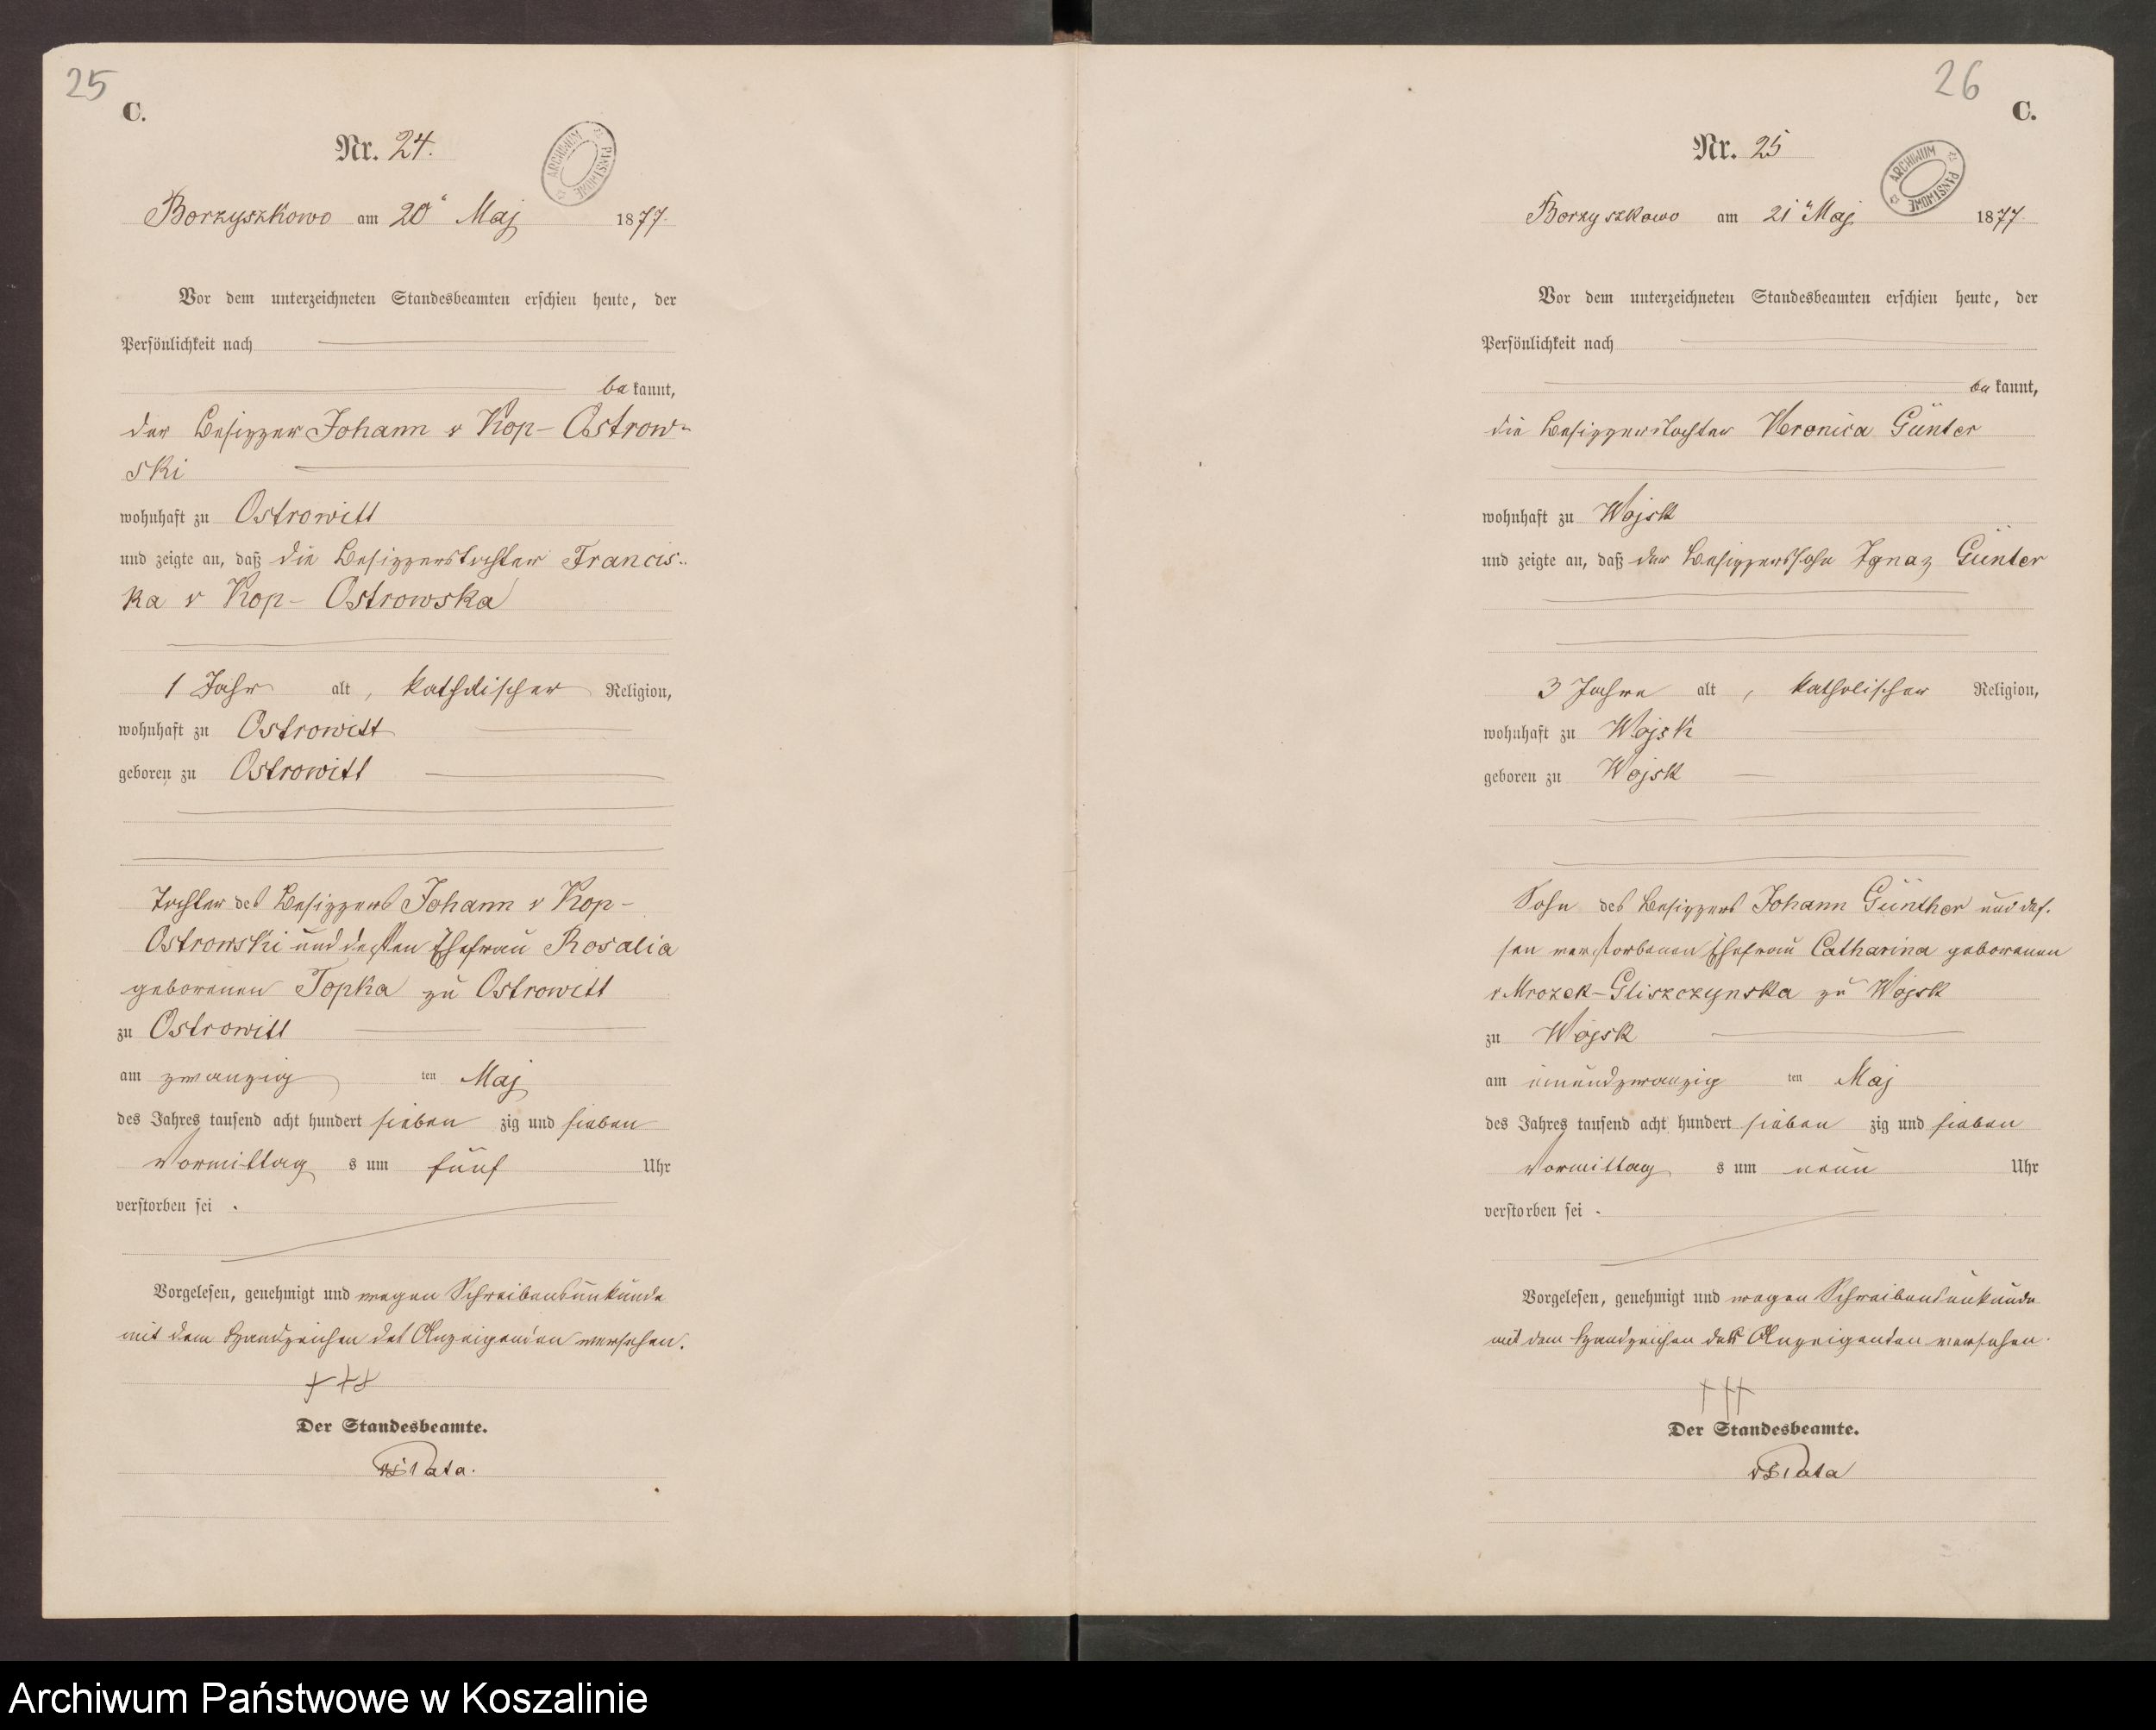 25
C.
Nr. 24.
ARCHIWUM PAŃSTWOWE
Borzyszkowo am 20" Maj 1877.
Vor dem unterzeichneten Standesbeamten erschien heute, der
Persönlichkeit nach
be kannt,
der Besitzer Johann v Kop- Ostrow-
ski
wohnhaft zu Ostrowitt
und zeigte an, daß die Besitzerstochter Francis-
ka v Kop- Ostrowska
1 Jahr alt, katholischer Religion,
wohnhaft zu Ostrowitt
geboren zu Ostrowitt
Tochter des Besitzers Johann v Kop-
Ostrowski und dessen Ehefrau Rosalia
geborenen Topka zu Ostrowitt
zu Ostrowitt
am zwanzig ten Maj
des Jahres tausend acht hundert sieben zig und sieben
Vormittag s um fünf Uhr
verstorben sei.
Vorgelesen, genehmigt und wegen Schreibensunkunde
mit dem Handzeichen des Anzeigenden versehen.
+++
Der Standesbeamte.
26
C.
Nr. 25
ARCHIWUM PAŃSTWOWE
Borzyszkowo am 21" Maj 1877.
Vor dem unterzeichneten Standesbeamten erschien heute, der
Persönlichkeit nach
be kannt,
die Besitzerstochter Veronica Günter
wohnhaft zu Wojsk
und zeigte an, daß der Besitzerssohn Ignaz Günter
3 Jahre alt, katholischer Religion,
wohnhaft zu Wojsk
geboren zu Wojsk
Sohn des Besitzers Johann Günther und des-
sen verstorbenen Ehefrau Catharina geborenen
v Mrozek-Gliszczynska zu Wojsk
zu Wojsk
am einundzwanzig ten Maj
des Jahres tausend acht hundert sieben zig und sieben
Vormittag s um neun Uhr
verstorben sei.
Vorgelesen, genehmigt und wegen Schreibensunkunde
mit dem Handzeichen des Anzeigenden versehen.
+++
Der Standesbeamte.
Archiwum Państwowe w Koszalinie